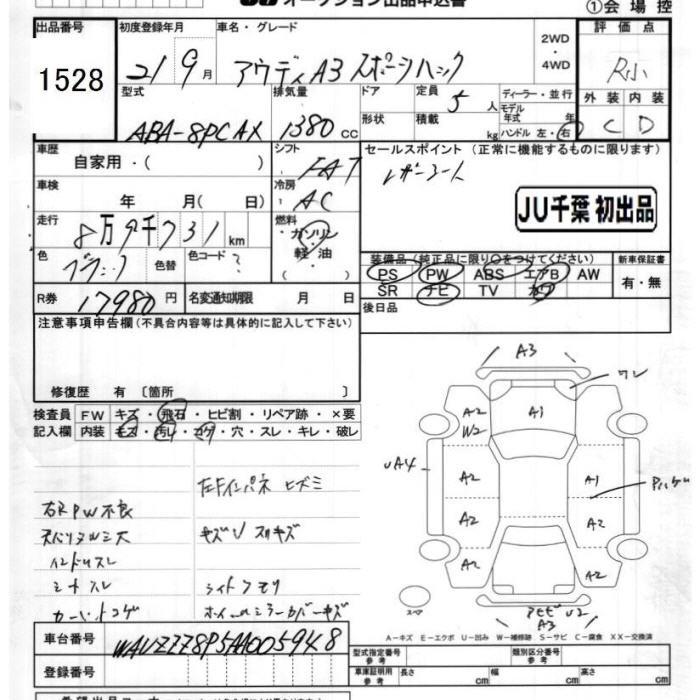 オークション出品申込書
①会場控
出品番号
1528
初度登録年月
21 9月
車名・グレード
アウディA3 スポーツバック
2WD
・
4WD
評価点
R小
外装 内装
C D
型式
ABA-8PCAX
排気量
1380cc
ドア
形状
定員 5人
積載 kg
ディーラー・並行
モデル年式 年
ハンドル 左・右
車歴
自家用・( )
シフト
FAT
セールスポイント (正常に機能するものに限ります)
レザーシート
JU千葉 初出品
車検
年 月(日)
冷房
AC
走行
8万9千731km
燃料
ガソリン
軽油
色
ブラック
色替
色コード
?
装備品(純正品に限り○をつけてください)
PS PW ABS エアB AW
SR ナビ TV カワ
新車保証書
有・無
R券 17980円
名変通知期限 月 日
後日品
注意事項申告欄(不具合内容等は具体的に記入して下さい)
修復歴 有 〔箇所 〕
検査員記入欄
FW キズ・飛石・ヒビ割・リペア跡・×要
内装 キズ・汚れ・コゲ・穴・スレ・キレ・破レ
左Fインパネ ヒズミ
右RPW不良
キズU スリキズ
シートスレ
ライトクモリ
カーペットコゲ
ホイールミラーカバーキズ
A3
ワレ
A2
W2
A1
UA4
A2
A1
A2
A2
A2
A2
スペア
U2
A3
A-キズ E-エクボ U-凹み W-補修跡 S-サビ C-腐食 XX-交換済
車台番号
WAUZZZ8P5AA005948
登録番号
型式指定番号
参考
類別区分番号
参考
車庫証明用
参考
長さ cm
幅 cm
高さ cm